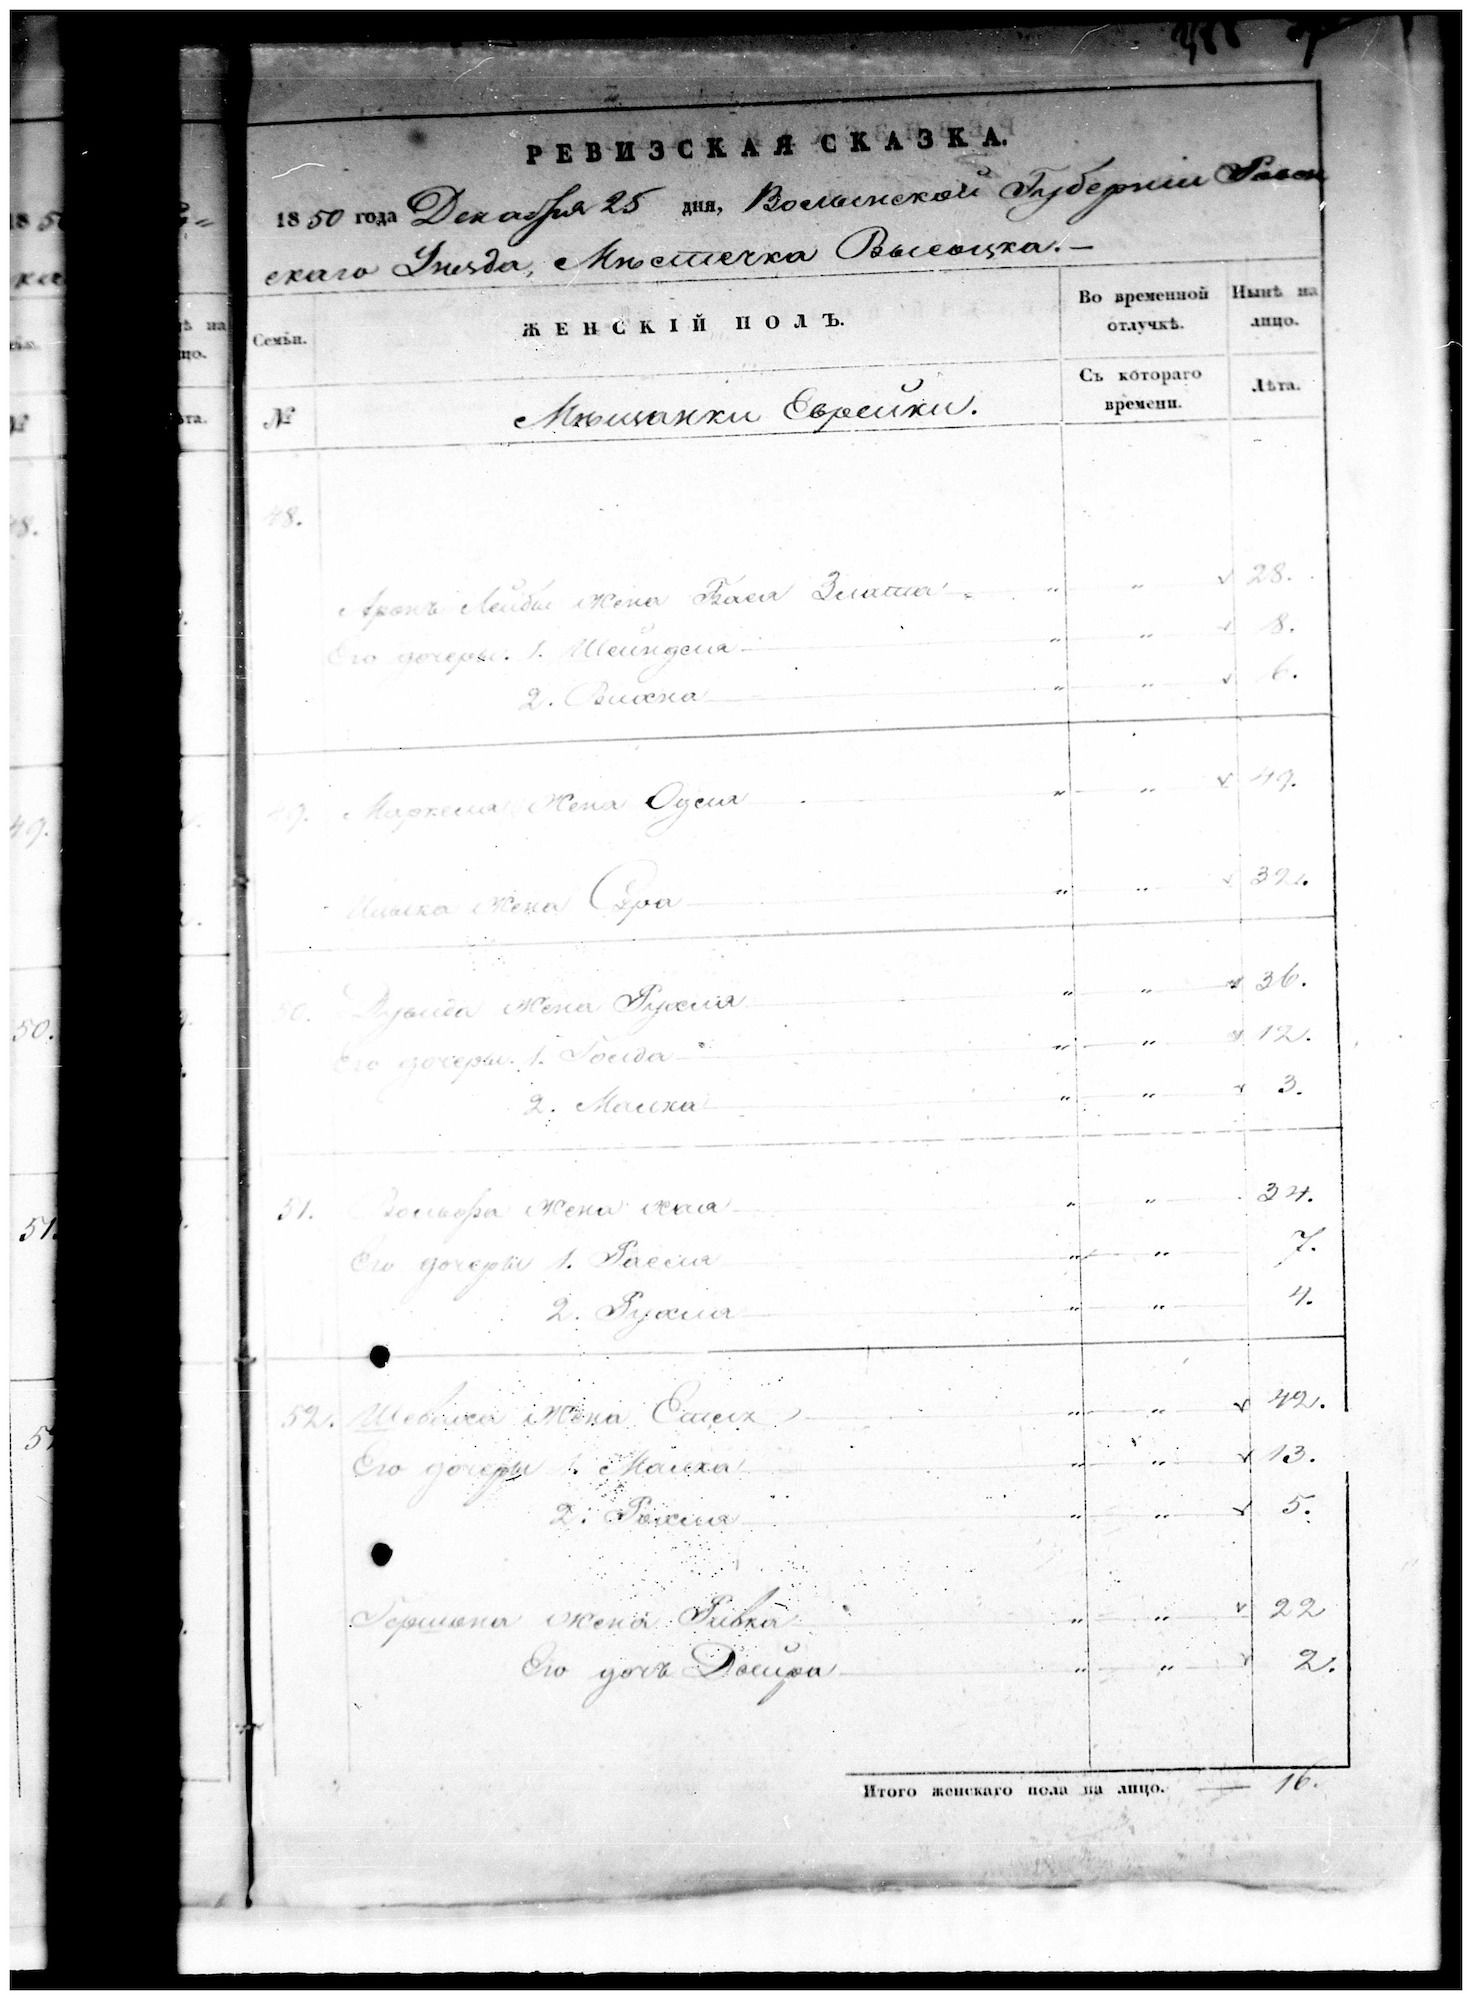 РЕВИЗСКАЯ СКАЗКА.
1850 года Декабря 25 дня, Волынской Губерніи Ровен
скаго Уѣзда, Мѣстечка Высоцка.—
Семьи.
ЖЕНСКІЙ ПОЛЪ.
Во временной отлучкѣ.
Нынѣ на лицо.
№
Мѣщанки Еврейки.
Съ котораго времени.
Лѣта.
48.
Аронъ Лейбы жена Бася Злата „ „ 28.
Его дочери. 1. Шейндля „ „ 8.
2. Вихна „ „ 6.
49. жена Одля „ „ 49.
Ицька жена Сура „ „ 32.
50. жена Рухля „ „ 36.
Его дочери. 1. Голда „ „ 12.
2. Малка „ „ 3.
51. жена Хая „ „ 34.
Его дочери 1. „ „ 7.
2. Рухля „ „ 4.
52. жена „ „ 42.
Его дочери 1. Малка „ „ 13.
2. „ „ 5.
Гершона жена Ривка „ „ 22
Его дочь Двейра „ „ 2.
Итого женскаго пола на лицо. — 16.
49.
50.
51.